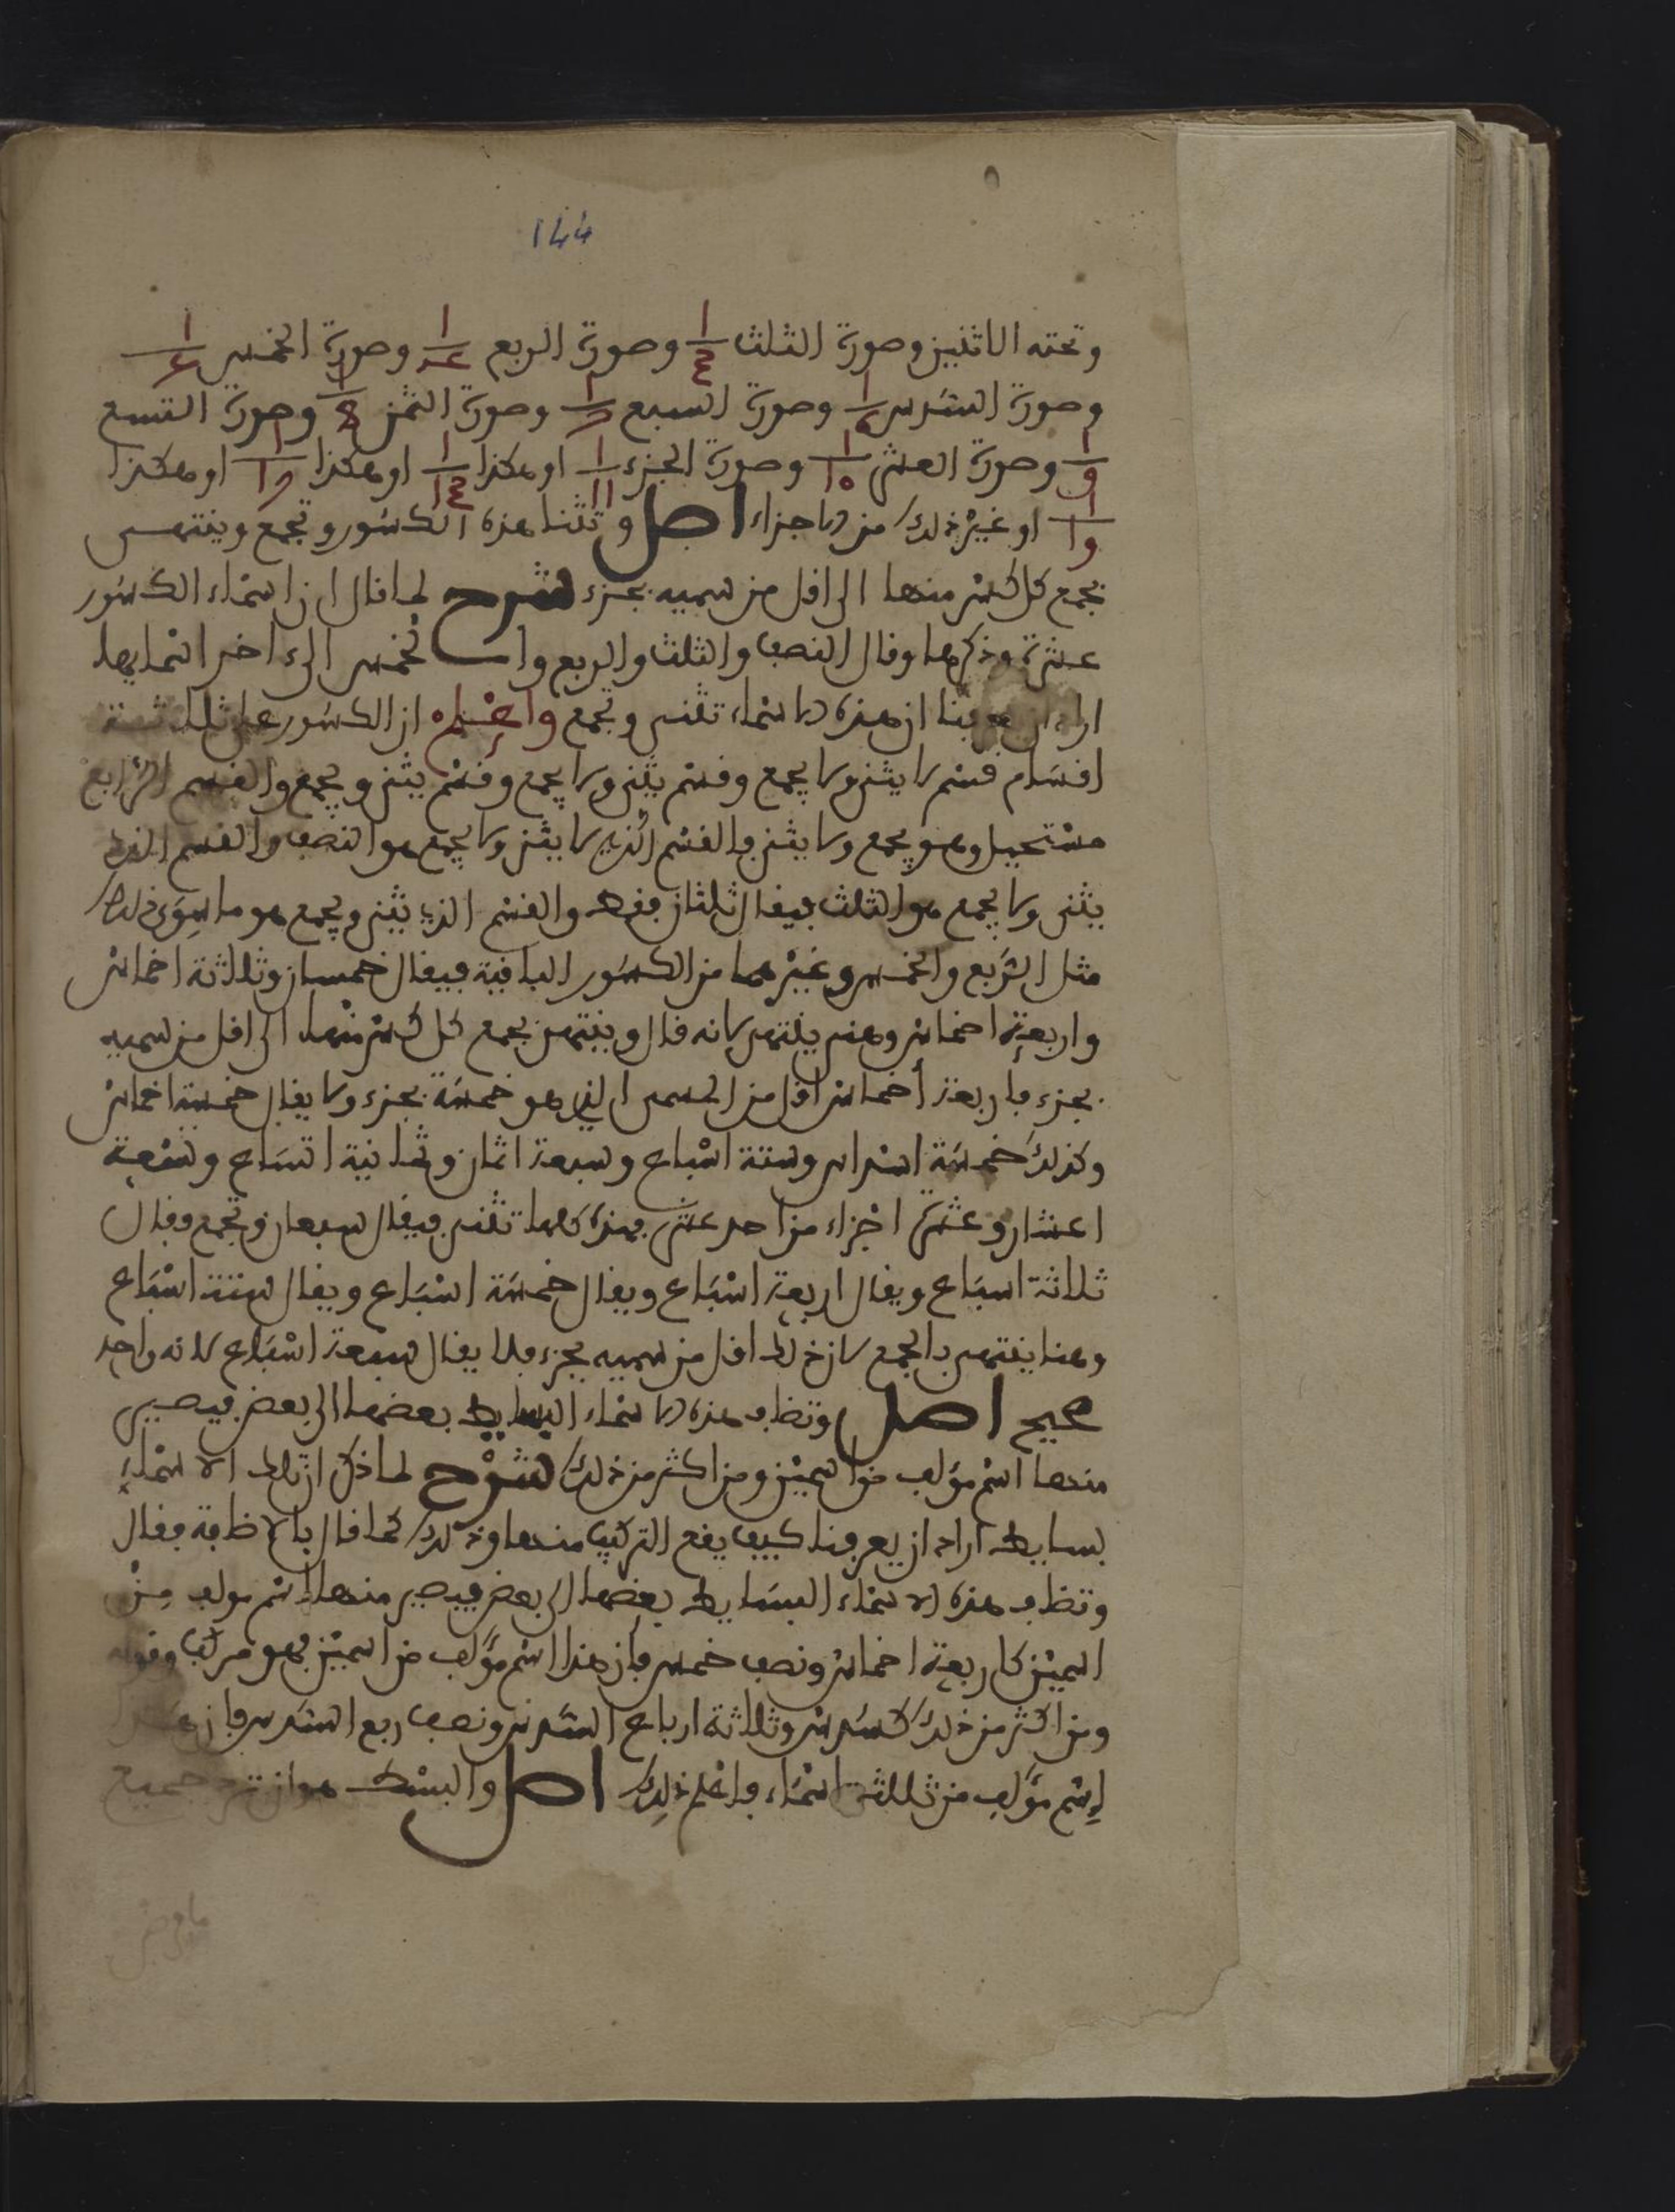 144
وتحته الاثنين وصورة الثلث 1/3 وصورة الربع 1/4 وصورة الخمس 1/5
وصورة السدس 1/6 وصورة السبع 1/7 وصورة الثمن 1/8 وصورة التسع
1/9 وصورة العشر 1/10 وصورة الجزء 1/11 او هكذا 1/13 او هكذا 1/17 او هكذا
1/19 او غير ذلك من الاجزاء اصل وتثنا هذه الكسور وتجمع وينتهى
بجمع كل كسر منها الى اقل من سميه بجزء شرح لما قال ان اسماء الكسور
عشرة وذكرها وقال النصف والثلث والربع والخمس الى ءاخر اسمايها
اراد ان يعرفنا ان هذه الاسماء تثنى وتجمع واعلم ان الكسور على ثلاثة
اقسام قسم لا يثنى ولا يجمع وقسم يثنى ولا يجمع وقسم يثنى ويجمع والقسم الرابع
مستحيل وهو يجمع ولا يثنى فالقسم الذي لا يثنى ولا يجمع هو النصف والقسم الذي
يثنى ولا يجمع هو الثلث فيقال ثلثان فقط والقسم الذي يثنى ويجمع هو ما سوى ذلك
مثل الربع والخمس وغيرهما من الكسور الباقية فيقال خمسان وثلاثة اخماس
واربعة اخماس وهنى ينتهى لانه قال وينتهى بجمع كل كسر منها الى اقل من سميه
بجزء فاربعة أخماس اقل من السمى الذي هو خمسة بجزء ولا يقال خمسة اخماس
وكذلك خمسة اسداس وستة اسباع وسبعة اثمان وثمانية اتساع وتسعة
اعشار وعشرة اجزاء من احد عشر فهذه كلها تثنى فيقال سبعان وتجمع فيقال
ثلاثة اسباع ويقال اربعة اسباع ويقال خمسة اسباع ويقال ستة اسباع
وهنا ينتهى بالجمع لان ذلك اقل من سميه بجزء فلا يقال سبعة اسباع لانه واحد
صحيح اصل وتضاف هذه الاسماء البسايط بعضها الى بعض فيصير
منها اسم مؤلف من اسمين ومن اكثر من ذلك شرح لما ذكر ان تلك الاسماء
بسايط اراد ان يعرفنا كيف يقع التركيب منها وذلك كما قال بالاضافة فقال
وتضاف هذه الاسماء البسايط بعضها الى بعض فيصير منها اسم مولف من
اسمين كاربعة اخماس ونصف خمس فان هذا اسم مؤلف من اسمين فهو مركب وقوله
ومن اكثر من ذلك كسدس وثلاثة ارباع السدس ونصف ربع السدس فان هذا
اسم مؤلف من ثلاثة اسماء فاعلم ذلك اصل والبسط هو ان ترد جميع